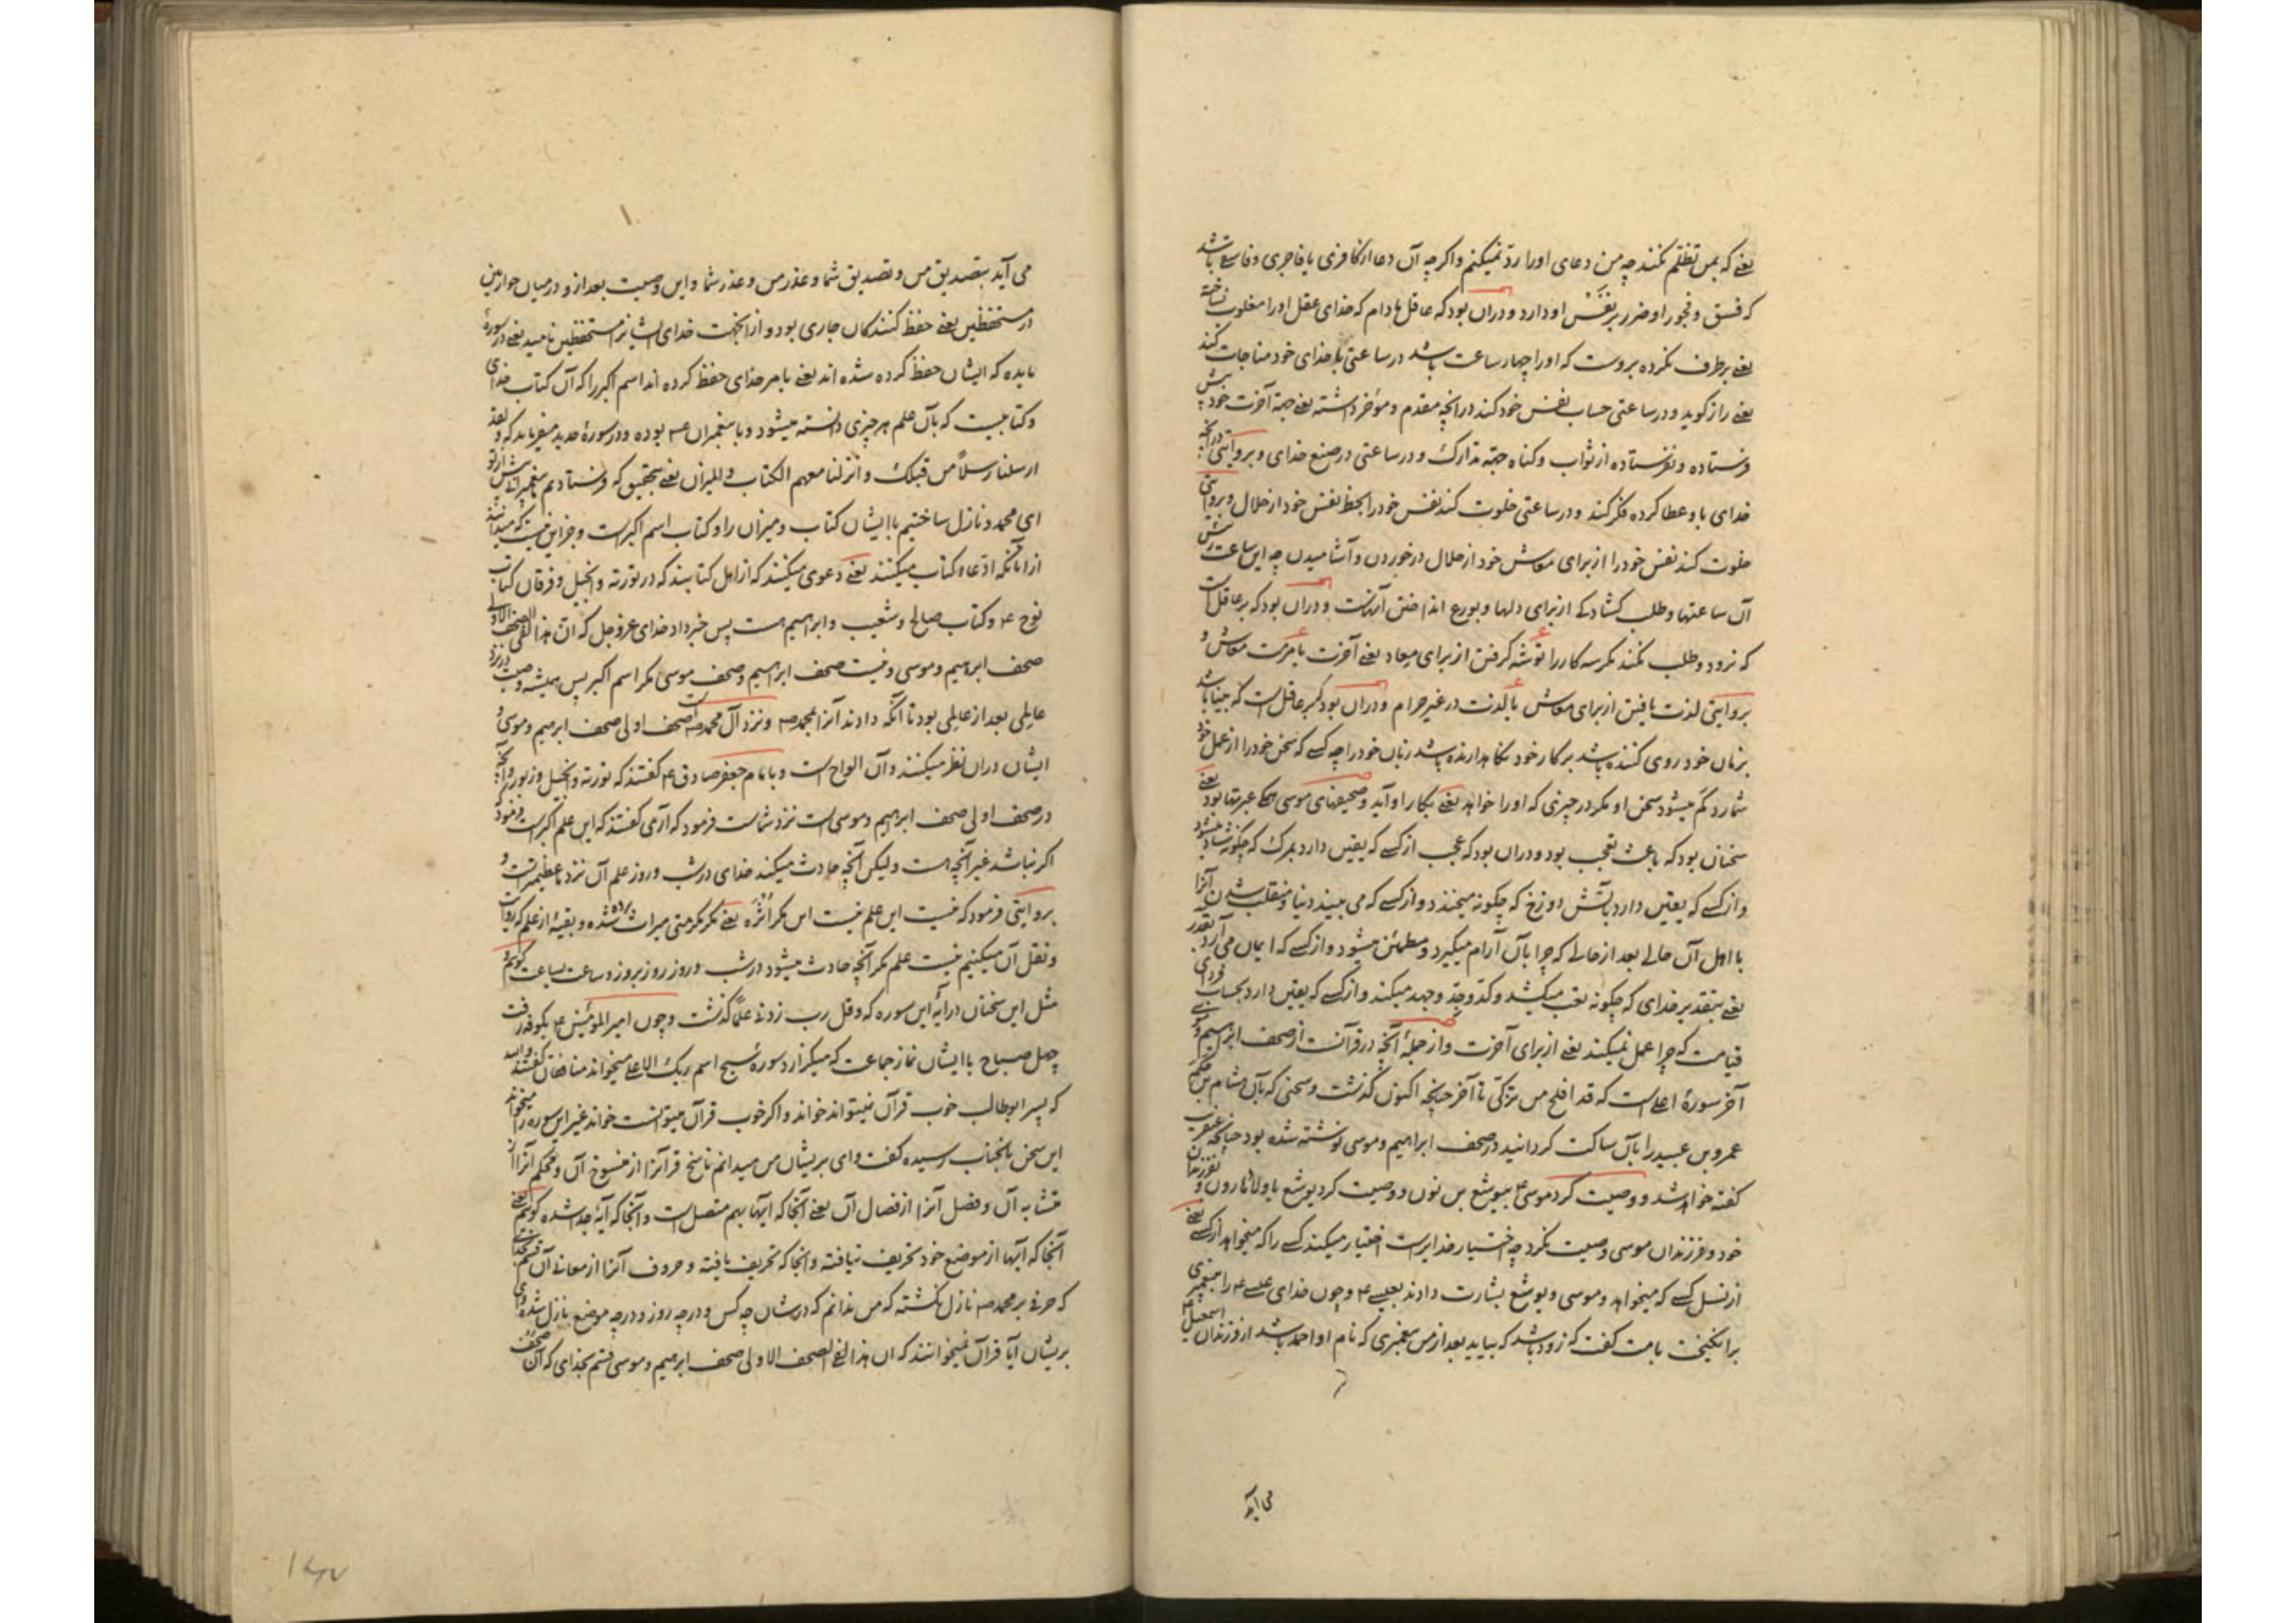 یعنے که بمن تظلم نکنند چه من دعای او را رد نمیکنم و اکرچه آن دعا از کافری یا فاجری و فاسق باشد
که فسق و فجور او ضرر بر نفس او دارد و دران بود که عاقل مادام که خدای عقل او را مغلوب نساخته
یعنے برطرف نکرده بروست که او را چهار ساعت باشد در ساعتی با خدای خود مناجات کند
یعنے راز کوید و در ساعتی حساب نفس خود کند در انچه مقدم و مؤخر داشته یعنے جهة آخرت خود پیش
فرستاده و نفرستاده از ثواب و کناه جهة تدارک و در ساعتی در صنع خدای و بروایتی در آنچه
خدای باو عطا کرده فکر کند و در ساعتی خلوت کند نفس خود را بحظ نفس خود از حلال و بروایتی
خلوت کند نفس خود را از برای معاش خود از حلال در خوردن و آشامیدن چه این ساعت
آن ساعتها و طلب کشادکے از برای دلها و انداختن آنهاست و دران بود که بر عاقل است
که نرود و طلب نکند مکر سه کار را توشه کرفتن از برای میعاد یعنے آخرت یا مرمت معاش و
بروایتی لذت یافتن از برای معاش یا لذت در غیر حرام و دران بود که بر عاقل است که بینا باشد
بزمان خود روی کننده باشد بر کار خود نکاهدارنده باشد زبان خود را چه کسے که سخن خود را از عمل خود
شمارد کم میشود سخن او مکر در چیزی که او را خواهد یعنے بکار او آید و صحیفهای موسی همکے عبرتها بود یعنے
سخنان بود که باعث تعجب بود و دران بود که عجب از کسے که یقین دارد بمرک که چکونه شاد میشود
و از کسے که یقین دارد بآتش دوزخ که چکونه میخندد و از کسے که می بیند دنیا و منقلب شدن آنرا
با اهل آن حالے بعد از حالے که چرا بآن آرام میکیرد و مطمئن میشود و از کسے که ایمان می آرد بقدر
یعنے بتقدیر خدای که چکونه تعب میکشد و کد و جد و جهد میکند و از کسے که یقین دارد بحساب فردای
قیامت که چرا عمل نمیکند یعنے از برای آخرت و از جملهٔ آنچه در قرآنست از صحف ابراهیم و موسی
آخر سورهٔ اعلے است که قد افلح من تزکّی تا آخر چنانچه اکنون کذشت و سخنی که بآن هشام بن حکم
عمرو بن عبید را بآن ساکت کردانید در صحف ابراهیم و موسی نوشته شده بود چنانچه عنقریب
کفته خواهد شد و وصیت کرد موسی ع بیوشع بن نون و وصیت کرد یوشع باولاد هارون و بفرزندان
خود و فرزندان موسی وصیت نکرد چه اختیار خدایراست اختیار میکند کسے را که میخواهد از کسے یعنے
از نسل کسے که میخواهد و موسی و یوشع بشارت دادند بعیسے ع و چون خدای عیسے ع را به پیغمبری
برانکیخت بامت کفت که زود باشد که بیاید بعد از من پیغمبری که نام او احمد باشد از فرزندان اسمعیل
می آید
می آید بتصدیق من و تصدیق شما و عذر من و عذر شما و این وصیت بعد ازو در میان حواریین
در مستحفظین یعنے حفظ کنندکان جاری بود و از انجهت خدای ایشانرا مستحفظین نامید یعنے در سورهٔ
مایده که ایشان حفظ کرده شده اند یعنے بامر خدای حفظ کرده اند اسم اکبر را که آن کتاب خدای
و کتابیست که بآن علم هر چیزی دانسته میشود و با پیغمبران ع م بوده و در سورهٔ حدید میفرماید که و لقد
ارسلنا رسلاً من قبلک و انزلنا معهم الکتاب و المیزان یعنے بتحقیق که فرستادیم پیغمبران پیش از تو
ای محمد و نازل ساختیم با ایشان کتاب و میزان را و کتاب اسم اکبرست و جز این نیست که میدانند
از آنکه ادعاء کتاب میکنند یعنے دعوی میکنند که از اهل کتابند که در توریة و انجیل و فرقان کتاب
نوح ع و کتاب صالح و شعیب و ابراهیم هست پس خبر داد خدای عز و جل که ان هذا لفی الصحف الاولی
صحف ابرهیم و موسی و نیست صحف ابراهیم و صحف موسی مکر اسم اکبر پس همیشه وصیت در نزد
عالمی بعد از عالمی بود تا آنکه دادند آنرا بمحمد ص و نزد آل محمد ص است صحف اولی صحف ابرهیم و موسی و
ایشان دران نظر میکنند و آن الواح است و بامام جعفر صادق ع کفتند که توریة و انجیل و زبور و آنچه
در صحف اولی صحف ابراهیم و موسی است نزد شماست فرمود که آری کفتند که این علم اکبر است فرمود
اکر نباشد غیر آنچه هست و لیکن آنچه حادث میکند خدای در شب و روز علم آن نزد ما عظیمتر است و
بروایتی فرمود که نیست این علم نیست این مکر اثره یعنے مکر مکرمتی میراث شده و بقیهٔ از علم که روایت
و نقل آن میکنیم نیست علم مکر آنچه حادث میشود در شب و روز روز بروز و ساعت بساعت کویم و
مثل این سخنان در آیهٔ این سوره که و قل رب زدنے علماً کذشت و چون امیر المؤمنین ع بکوفه رفت
چهل صباح با ایشان نماز جماعت که میکزارد سورهٔ سبح اسم ربک الاعلے میخواند منافقان کفتند والله
که پسر ابوطالب خوب قرآن نمیتواند خواند و اکر خوب قرآن میتوانست خواند غیر این سوره را میخواند
این سخن بانجناب رسیده کفت وای بریشان من میدانم ناسخ قرآنرا از منسوخ آن و محکم آنرا از
متشابه آن و فصل آنرا از فصال آن یعنے آنجا که آیها بهم متصل است و آنجا که آیه جدا شده کویم یعنے
آنجا که آیها از موضع خود تحریف نیافته و انجا که تحریف یافته و حروف آنرا از معانے آن قسم بخدای
که حرفے بر محمد ص نازل نکشته که من ندانم که در شان چه کس و در چه روز و در چه موضع نازل شده وای
بریشان آیا قرآن نمیخوانند که ان هذا لفی الصحف الاولی صحف ابرهیم و موسی قسم بخدای که آن صحف